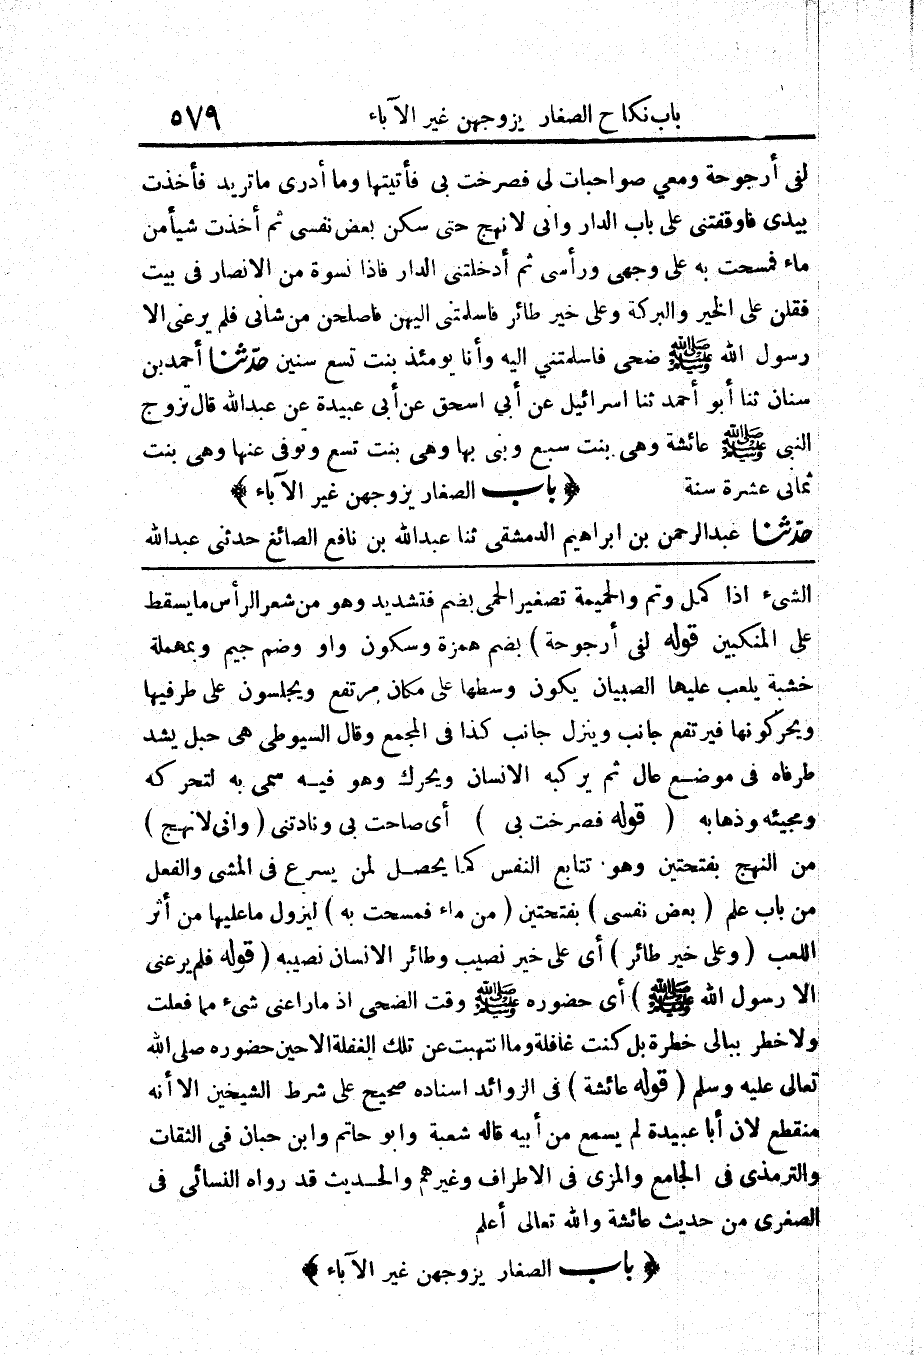 باب نكاح الصغار يزوجهن غير الآباء ٥٧٩
لفى أرجوحة ومعي صواحبات لى فصرخت بى فأتيتها وما أدرى ماتريد فأخذت
بيدى فاوقفتنى على باب الدار وانى لانهج حتى سكن بعض نفسى ثم أخذت شيأ من
ماء فمسحت به على وجهى ورأسى ثم أدخلتنى الدار فاذا نسوة من الانصار فى بيت
فقلن على الخير والبركة وعلى خير طائر فاسلمتنى اليهن فاصلحن من شانى فلم يرعنى الا
رسول الله ﷺ ضحى فاسلمتني اليه وأنا يومئذ بنت تسع سنين حدّثنا أحمد بن
سنان ثنا أبو أحمد ثنا اسرائيل عن أبي اسحق عن أبى عبيدة عن عبدالله قال تزوج
النبى ﷺ عائشة وهى بنت سبع وبنى بها وهى بنت تسع وتوفى عنها وهى بنت
ثمانى عشرة سنة ﴿ باب الصغار يزوجهن غير الآباء ﴾
حدّثنا عبدالرحمن بن ابراهيم الدمشقى ثنا عبدالله بن نافع الصائغ حدثنى عبدالله
الشىء اذا كمل وتم والجميمة تصغير الجمى بضم فتشديد وهو من شعر الرأس ما يسقط
على المنكبين قوله لفى أرجوحة ) بضم همزة وسكون واو وضم جيم وبمهملة
خشبة يلعب عليها الصبيان يكون وسطها على مكان مرتفع ويجلسون على طرفيها
ويحركونها فيرتفع جانب وينزل جانب كذا فى المجمع وقال السيوطى هى حبل يشد
طرفاه فى موضع عال ثم يركبه الانسان ويحرك وهو فيه سمى به لتحركه
ومجيئه وذهابه ( قوله فصرخت بى ) أى صاحت بى ونادتنى ( وانى لانهج )
من النهج بفتحتين وهو تتابع النفس كما يحصل لمن يسرع فى المشى والفعل
من باب علم ( بعض نفسى ) بفتحتين ( من ماء فمسحت به ) ليزول ما عليها من أثر
اللعب ( وعلى خير طائر ) أى على خير نصيب وطائر الانسان نصيبه ( قوله فلم يرعنى
الا رسول الله ﷺ ) أى حضوره ﷺ وقت الضحى اذ ماراعنى شىء مما فعلت
ولاخطر ببالى خطرة بل كنت غافلة وما انتهيت عن تلك الغفلة الاحين حضوره صلى الله
تعالى عليه وسلم ( قوله عائشة ) فى الزوائد اسناده صحيح على شرط الشيخين الا أنه
منقطع لان أبا عبيدة لم يسمع من أبيه قاله شعبة وابو حاتم وابن حبان فى الثقات
والترمذى فى الجامع والمزى فى الاطراف وغيرهم والحديث قد رواه النسائى فى
الصغرى من حديث عائشة والله تعالى أعلم
﴿ باب الصغار يزوجهن غير الآباء ﴾